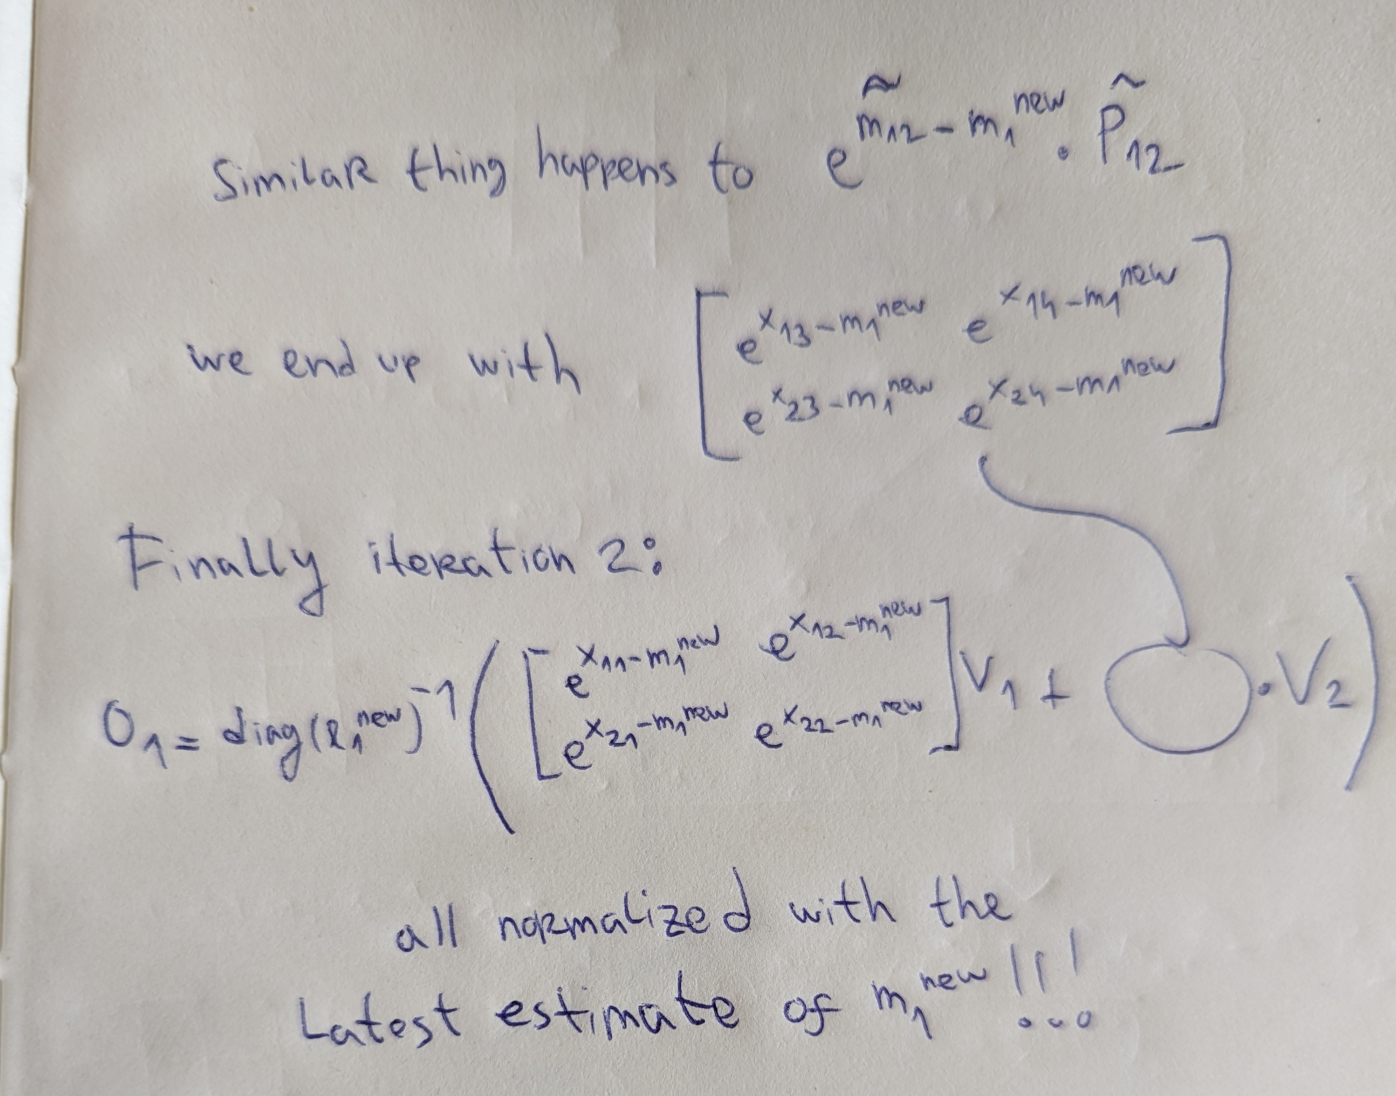 Similar thing happens to e^{m̃_{12} - m_1^{new}} · P̃_{12}
we end up with [ e^{x_{13} - m_1^{new}} e^{x_{14} - m_1^{new}}
e^{x_{23} - m_1^{new}} e^{x_{24} - m_1^{new}} ]
Finally iteration 2:
O_1 = diag(l_1^{new})^{-1} ( [ e^{x_{11} - m_1^{new}} e^{x_{12} - m_1^{new}}
e^{x_{21} - m_1^{new}} e^{x_{22} - m_1^{new}} ] V_1 + · V_2 )
all normalized with the
Latest estimate of m_1^{new} !!!